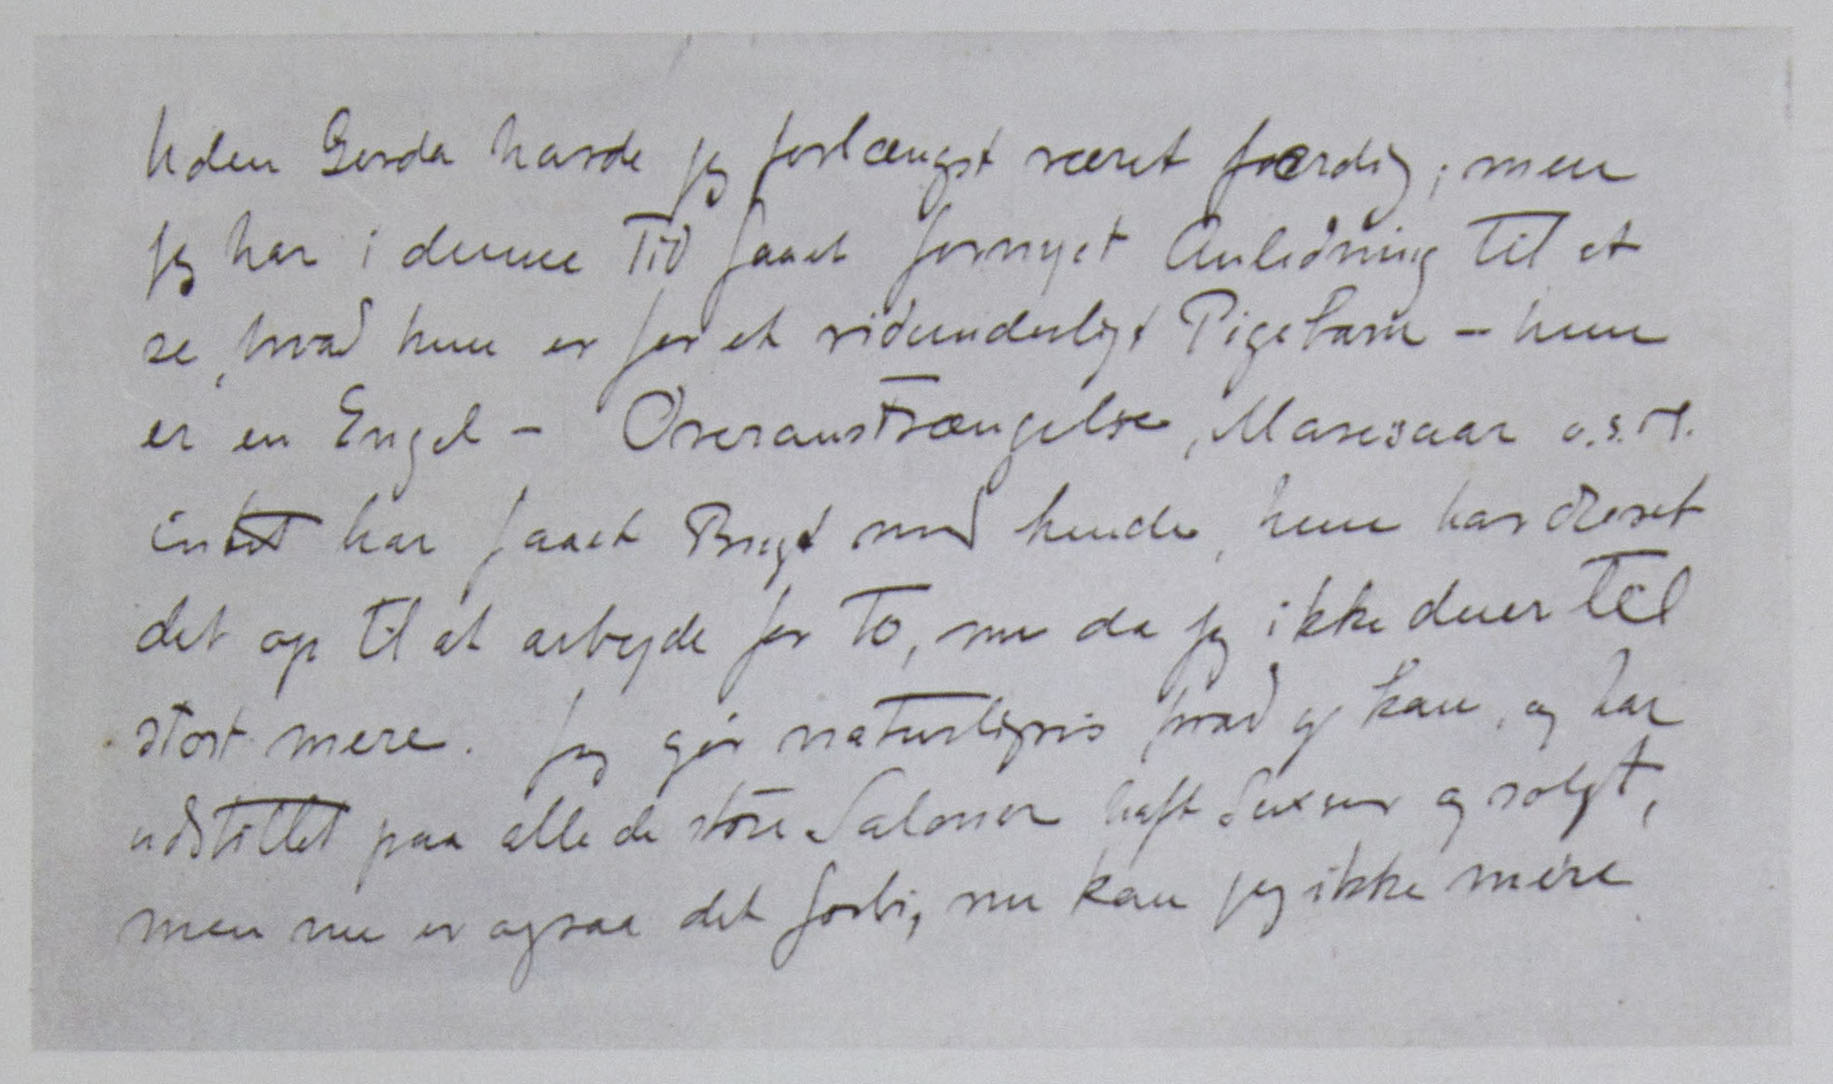 Uden Gerda havde jeg forlængst været færdig; men
jeg har i denne Tid faaet fornyet Anledning til at
se, hvad hun er for et vidunderligt Pigebarn – hun
er en Engel – Overanstrængelse, Maresaar o.s.v.
intet har faaet Bugt med hende, hun har drevet
det op til at arbejde for to, nu da jeg ikke duer til
stort mere. Jeg gør naturligvis hvad jeg kan, og har
udstillet paa alle de store Saloner haft Succes og solgt,
men nu er ogsaa det forbi, nu kan jeg ikke mere